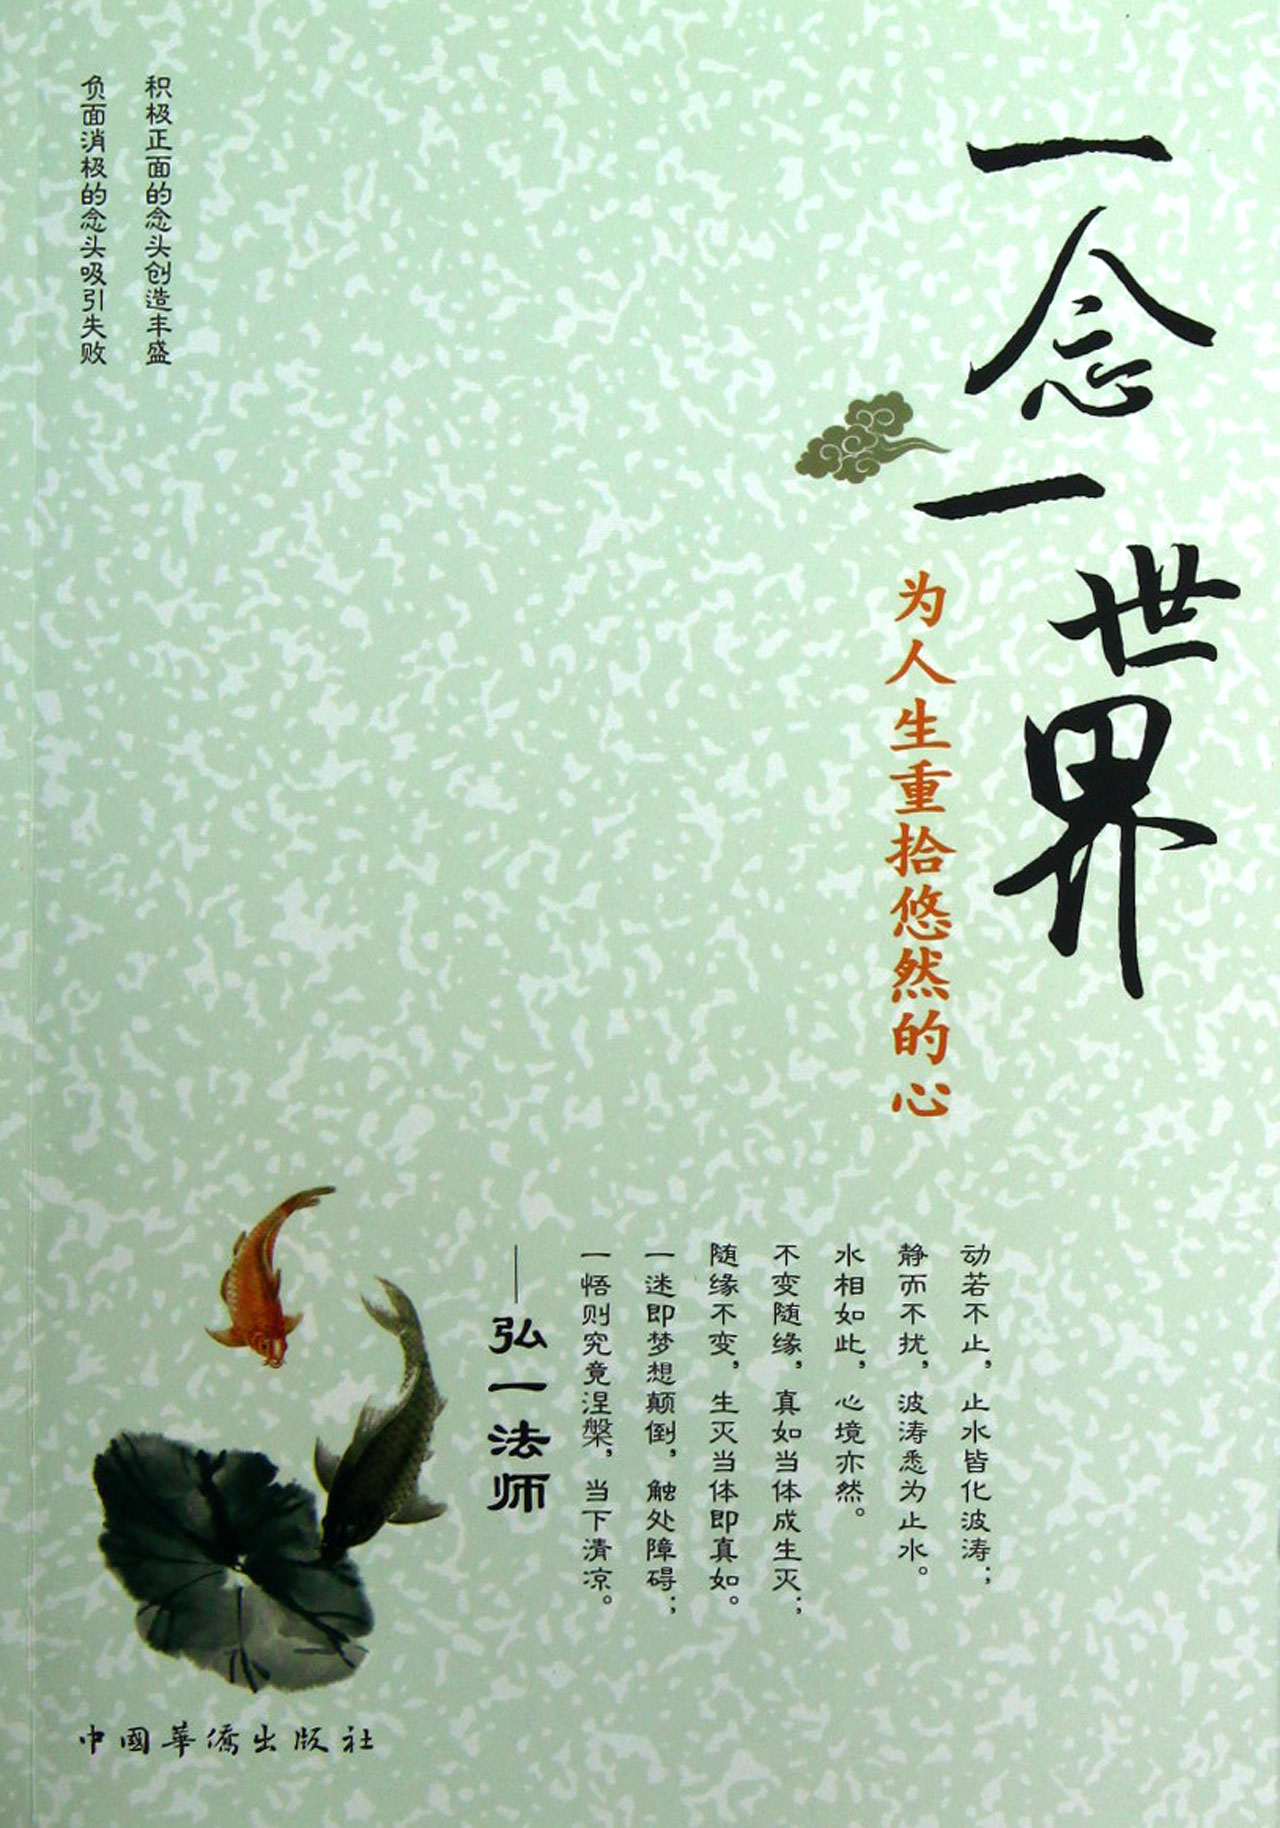 一念一世界
为人生重拾悠然的心
积极正面的念头创造丰盛
负面消极的念头吸引失败
动若不止，止水皆化波涛；
静而不扰，波涛悉为止水。
水相如此，心境亦然。
不变随缘，真如当体成生灭；
随缘不变，生灭当体即真如。
一迷即梦想颠倒，触处障碍；
一悟则究竟涅槃，当下清凉。
——弘一法师
中國華僑出版社